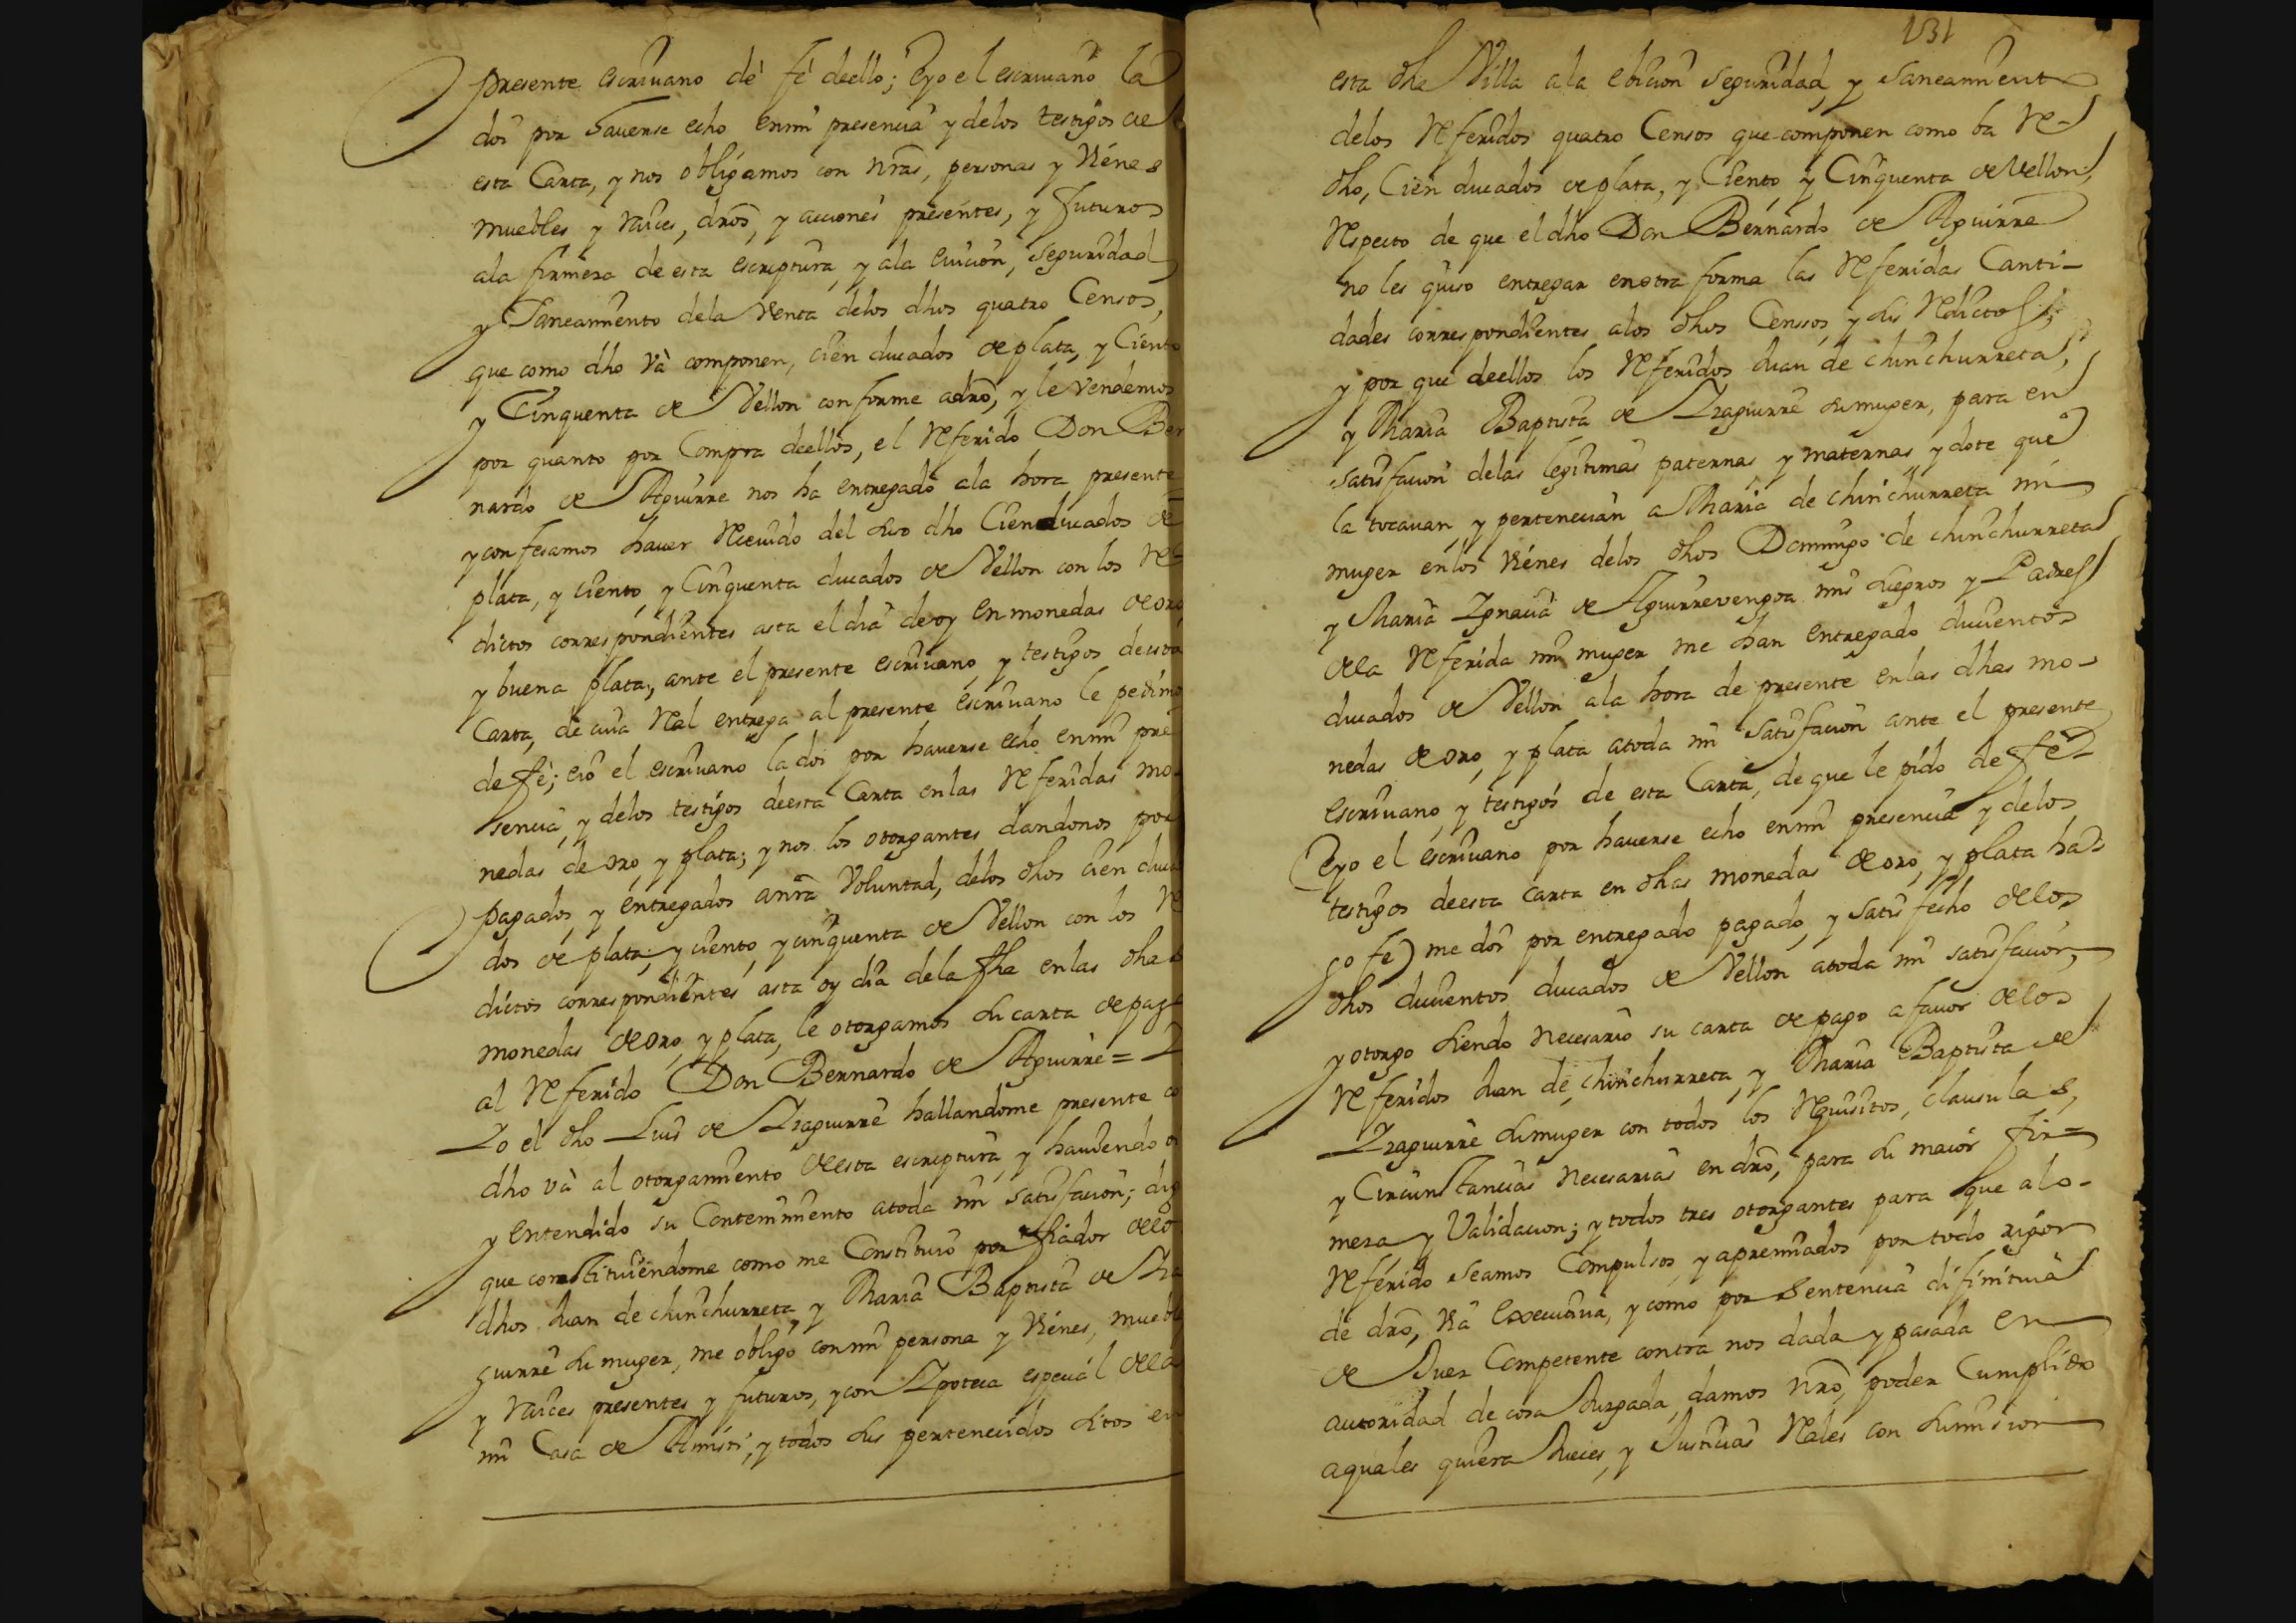 presente escriuano dé fé deello; Eyo el escriuano la
doi por hauerse echo enmi presencia y delos testigos de
esta Carta, y nos obligamos con nrãs, personas y Viénes
muebles y raices, drõs, y acciones presentes, y futuros
ala firmeza de esta escriptura, y ala euicion, seguridad
y Saneamiento dela Venta delos dhos quatro Censos,
que como dho và componen, cien ducados de plata, y Ciento
y Cinquenta de Vellon conforme adrõ, y le vendemos
por quanto por Compra deellos, el Referido Don Ber
nardo de Aguirre nos ha entregado ala hora presente
y confesamos hauer Receuido del suso dho Cien ducados de
plata, y ciento, y Cinquenta ducados de Vellon con los Re
dictos correspondientes asta el dia de oy En monedas de oro,
y buena plata, ante el presente escriuano, y testigos de esta
Carta, de cuia Real entrega al presente escriuano le pedimos
de fé; eió el escriuano la doi por hauerse echo enmi pre
sencia, y delos testigos deesta Carta enlas Referidas mo-
nedas de oro, y plata; y nos los otorgantes dandonos por
pagados, y entregados anrã Voluntad, delos dhos cien duca
dos de plata, y ciento, y cinquenta de Vellon con los Re
dictos correspondientes asta oy dia dela fha enlas dhas
monedas de oro, y plata, le otorgamos su carta de pago
al Referido Don Bernardo de Aguirre = Y
Yo el dho Luis de Yraguirre hallandome presente co
dho và al otorgamiento de esta escriptura, y hauiendo o
y Entendido su Contenimiento atoda mi satisfacion; dig
que constituiendome como me Constituio por fiador de lo
dhos Juan de chinchurreta, y Maria Baptista de Yra
guirre su muger, me obligo con mi persona y Viénes, mueble
y raices presentes y futuros, y con Ypoteca especial de la
mi Casa de Amisti, y todos sus pertenecidos sitos en
131
esta dha Villa ala ebicion seguridad, y saneamiento
delos Referidos quatro Censos que componen como ba Re-
dho, Cien ducados de plata, y Ciento, y Cinquenta de Vellon,
Respecto de que el dho Don Bernardo de Aguirre
no les quiso entregar enotra forma las Referidas Canti-
dades correspondientes alos dhos Censsos, y sus Redictos;
y por que deellos los Referidos Juan de chinchurreta,
y Maria Baptista de Yraguirre su muger, para en
satisfacion delas legitimas paternas y maternas y dote que
la tocauan, y pertenecian a Maria de chinchurreta mi
muger enlos Viénes delos dhos Domingo de chinchurreta
y Maria Ygnacia de Aguirrevengoa mis suegros y Padres
dela Referida mi muger me han entregado ducientos
ducados de Vellon ala hora de presente enlas dhas mo-
nedas de oro, y plata atoda mi satisfacion ante el presente
escriuano, y testigos de esta Carta, de que le pido de fé
(Eyo el escriuano por hauerse echo enmi presencia y delos
testigos deesta Carta en dhas monedas de oro, y plata ha-
go fe) me doi por entregado pagado, y satisfecho delos
dhos ducientos ducados de Vellon atoda mi satisfacion,
y otorgo siendo necesario su carta de pago a fauor delos
Referidos Juan de chinchurreta, y Maria Baptista de
Yraguirre su muger con todos los Requisitos, clausulas,
y Circunstancias necesarias en drõ, para su maior fir=
meza y Validacion; y todos tres otorgantes para que alo-
Referido seamos Compulsos, y apremiados por todo rigor
de drõ, via Executiua, y como por sentencia difinitiua
de Juez Competente contra nos dada y pasada en
autoridad de cosa Juzgada, damos nrõ, poder Cumplido
aquales quiera Jueces, y Justicias Reales con sumision